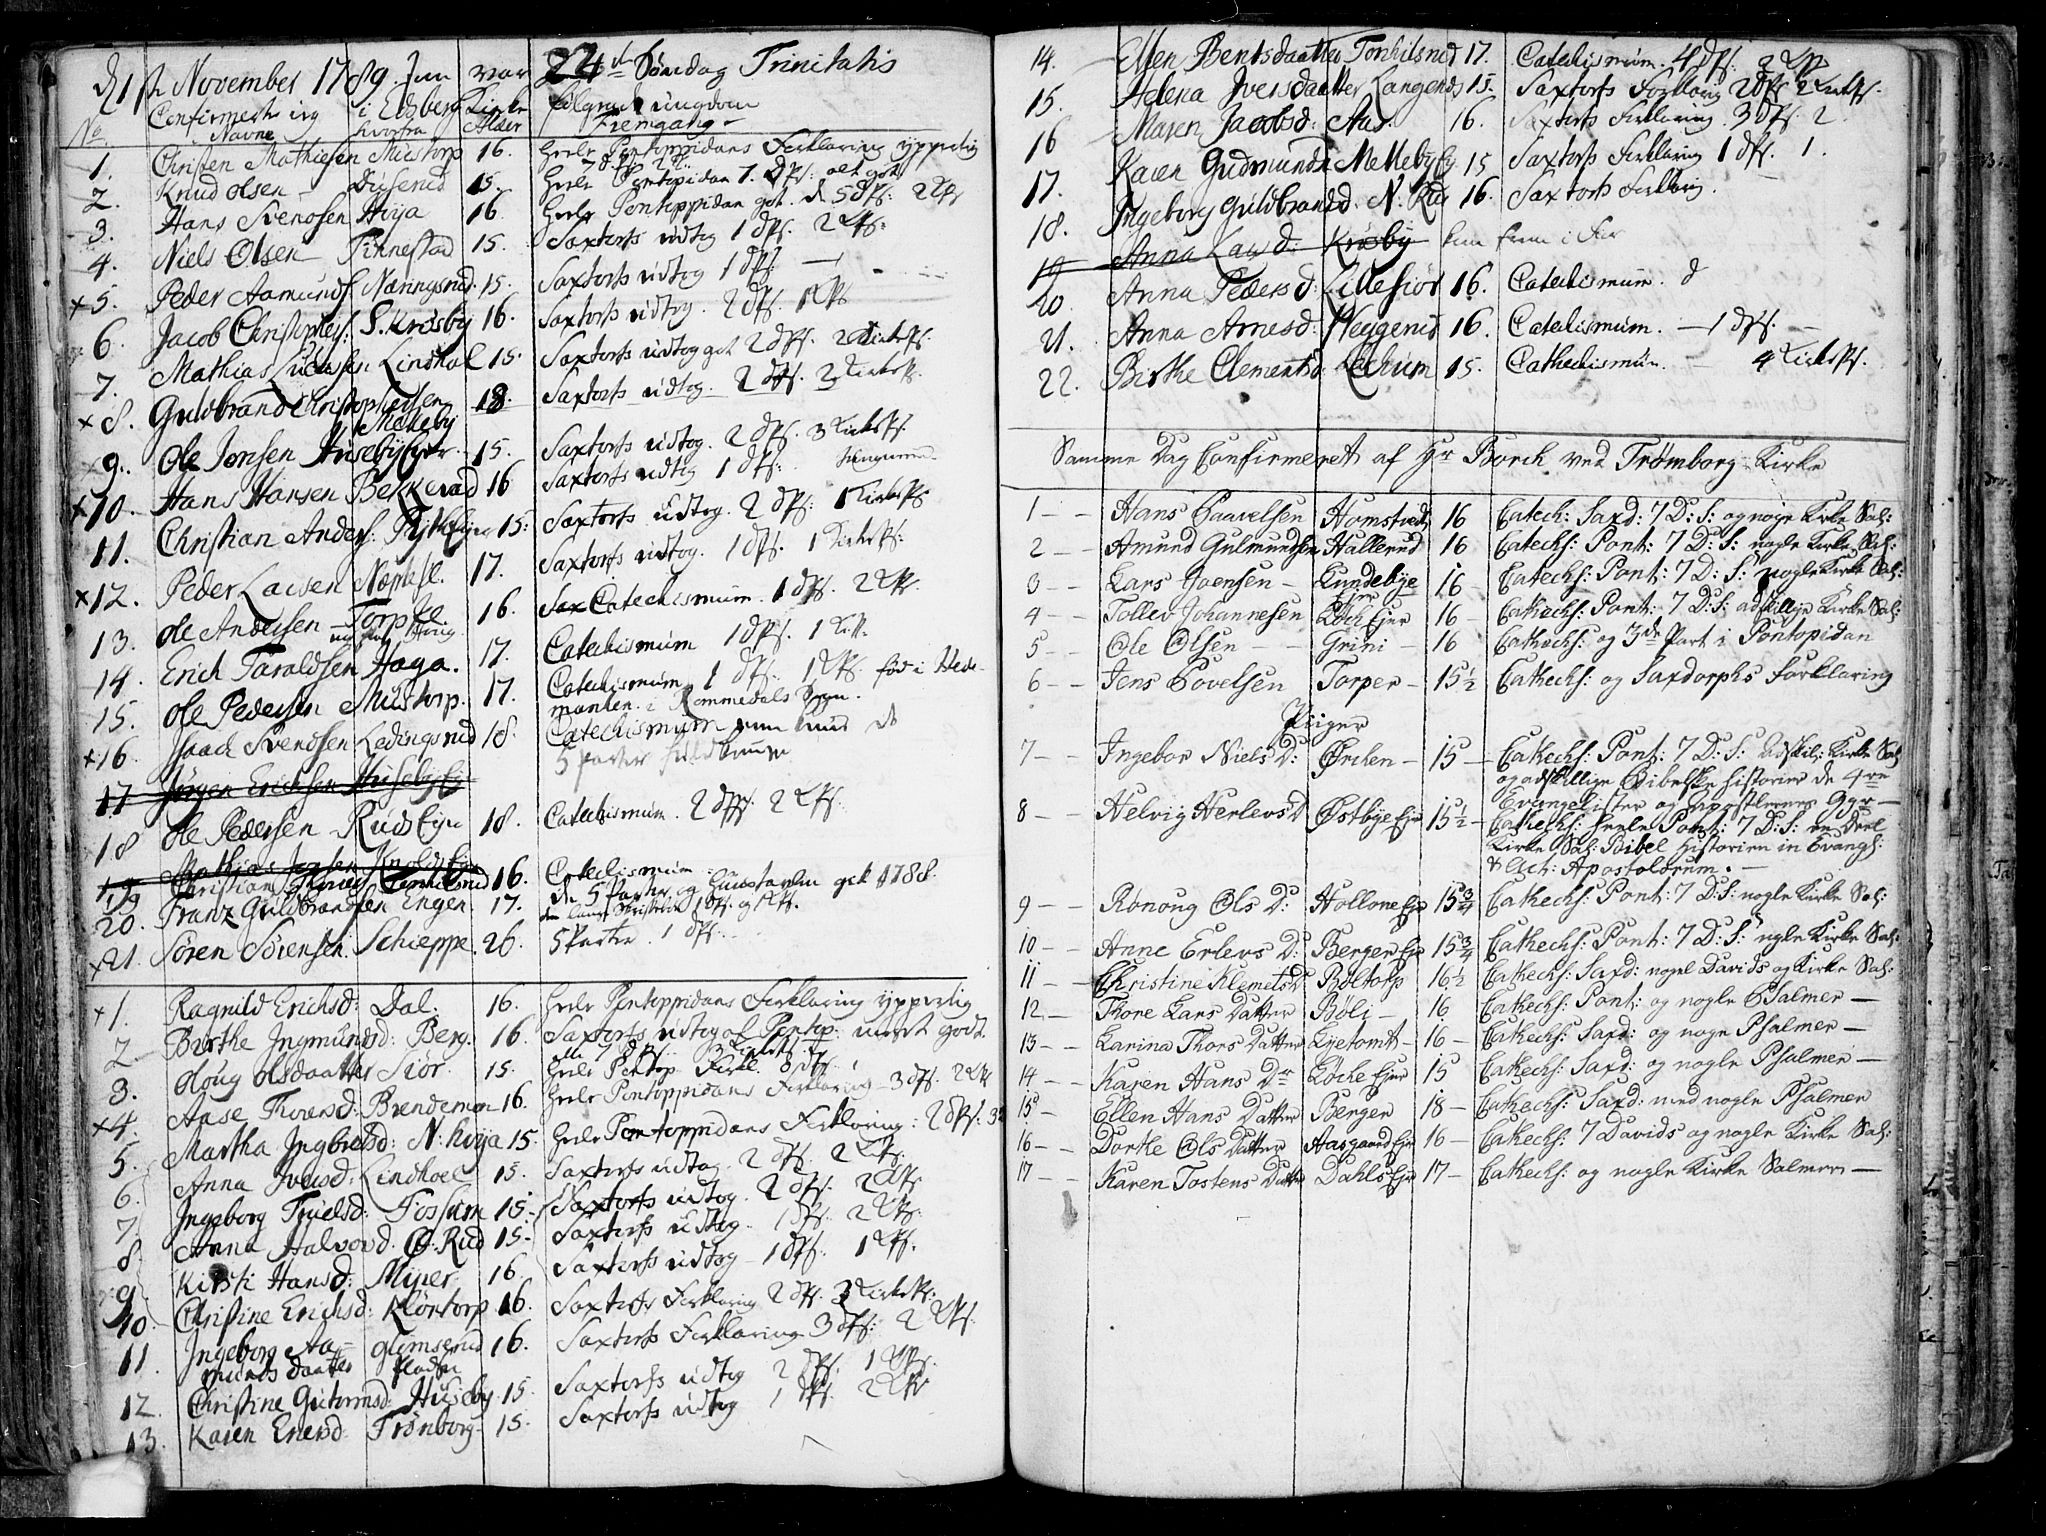 November 1789 som var 24de Søndag Trinitatis
Confirmerte jeg i Edsberg Kirke følgende ungdom
No Navne hvorfra Alder Fremgang
1. Christen Mathiesen Mustorp 16. heele Pontoppidans Forklaring ypperlig
2. Knud Olsen 15. heele Pontopidan 7. DPs: alt godt
3. Hans Svendsen Hvija 16. heele Pontoppidan got. 5 DPs: 2 KPs
4. Niels Olsen Finnestad 15. Saxtorfs udtog 1 dPs. 2 KPs.
x 5. Peder Aamunds. Nænngsrud 15. Saxtorfs udtog 1 dPs.
6. Jacob Christophers: S. Krosby 16. Saxtorfs udtog. 2 dPs. 1 KPs
7. Mathias Ludvigsen Lindhol 15. Saxtorfs udtog got 2 dPs. 2 KirkePs.
x 8. Guldbrand Christophersen Melleby 18. Saxtorfs udtog. 2 dPs. 2 KirkePs.
9. Ole Jonsen Husebyeier 15. Saxtorfs udtog. 2 dPs. 3 KirkePs.
x 10. Hans Hansen Bekkevad 16 Saxtorfs udtog 1 dPs.
11. Christian Anders: 15: Saxtorfs Udtog. 2 dPs: 1 KirkePs
x 12. Peder Larsen 17. Saxtorfs udtog. 1 dPs. 1 KirkePs:
13. Ole Andersen Torpe 16. Catechismum. 1 dPs. 2 KPs.
14. Erich Taraldsen Haga. 17. Catechismum 1 dPs. 1 KPs.
15. Ole Pedersen Mustorp. 17. Catechismum 1 dPs. 1 KPs. fød i Hede-
manken i Rommedals Sogn.
x 16 Isaach Svendsen Ledingsrud 18. Catechismum
5 Parter
17 Jørgen Erichsen Huseby
18 Ole Pedersen Ruds Eje 18. Catechismum. 2 dPs. 2 KPs.
19 Mathias Jensen
19 Christian Tonhilsrud 16. Catechismum
20. Franz Guldbrandsen Engen. 17. de 5 Parter og Huustavlen gik 1788.
1 dPs. og 1 KPs.
x 21. Søren Sørensen. Schieppe. 26. 5 Parter. 1 dPs.
x 1. Ragnild Erichsd: Dal. 16. heele Pontoppidans Forklaring ypperlig
2 Birthe Ingmundsd: Berg. 16. Saxtorfs udtog af Pontop: meget godt.
3. Oloug Olsdaatter Siør. 15. heele Pontop. Forkl. 8 dPs.
x 4. Aase Thoresd: Brendemoen 16. heele Pontoppidans Forklaring 3 dPs. 2 KPs
5. Martha Ingbretsd: N: hvija 15. heele Pontoppidans Forklaring: 2 dPs:
6. Anna Iversd: Lindhoel 15. Saxtorfs udtog. 2 dPs. 2 KPs.
7. Ingeborg Truelsd: Fossum 15. Saxtorfs udtog. 2 dPs. 2 KPs
8. Anna Halvord. Ø. Rud 15. Saxtorfs udtog. 1 dPs. 2 KPs.
9. Kirsti Hansd: Miner 16. Saxtorfs udtog 1 dPs. 1 KPs.
10. Christine Erichsd: Kløntorp 16. Saxtorfs Forklaring 2 dPs. 3 KirkePs:
11. Ingeborg Aa- Glemserud 16. Saxtorfs Forklaring 3 dPs: 2 KPs
munds daatter Pladsen
12. Christine Guttormsd: Huseby 15. Saxtorfs udtog 2 dPs. 1 KPs.
13. Karen Enersd: Trønborg 15. Saxtorfs udtog 1 dPs. 2 KPs
14. Ellen Bentsdaatter Tonhilsrud 17. Catechismum. 4 dPs. 2 KPs
15. Helena Iversdaatter Langends 15. Saxtorfs Forklaring 2 dPs. 2 KirkePs.
16 Maren Jacobsd: Aas. 16. Saxtorfs Forklaring. 3 dPs. 2.
17. Karen Gudmundsd Melleby Ej 15 Saxtorfs Forklaring 1 dPs. 1.
18. Ingeborg Guldbrandsd. N. Rud 16. Saxtorfs Forklaring.
19 Anna Larsd: Krosby
20 Anna Pedersd: Lillesiør 16. Catechismum. d
21. Anna Arnesd: Heggerud 16. Catechismum. — 1 dPs. —
22. Birthe Clementsd: Lechum 15. Cathechismum. — 4 KirkePs.
Samme Dag Confirmeret af Hr Borch ved Trømborg Kirke
1 — Hans Paavelsen Homstvedt 16 Catech: Saxd: 7 D: S: og nogle Kirke Sal:
2 — Amund Gulmundsen Hallerud 16 Catechs: Pont: 7 D: S: nogle Kirke Sal:
3 — Lars Joensen — Lundebye Ejer 16 — Catechs: Pont: 7 D: S: nogle Kirke Sal:
4 — Tollev Johannesen Løch Ejer 16 — Cathechs: Pont: 7 D: S: adskillige Kirke Sal:
5 — Ole Olsen — Grini — 16 Cathechs: og 3de Part i Pontopidan
6 — Jens Povelsen Torper — 15½ Cathechs: og Saxdorphs Forklaring
Piiger
7 — Ingebor Niels D: Ørchen — 15 — Cathechs: Pont: 7 D: S: Adskil: Kirke Sal
og adskillige Bibelske Historier de 4re
Evangelister og Apostlernes Ggr —
8 — Helvig Herlevs D Østbye Ejer 15½ — Cathechs: heele Pont: 7 D: S: en Deel
Kirke Sal: Bibel Historien in Evangl:
& Act: Apostolorum. —
9 — Rønoug Ols D: Hollone Eje 15¾ Cathechs: Pont: 7 D: S: nogle Kirke Sal:
10 — Anne Erlevs D: Berger Eje 15¾ Cathechs: Pont: 7 D: S: nogle Kirke Sal:
11 — Christine Klemets D Bøltorp 16½ Cathechs: Saxd: nogle Davids og Kirke Sal:
12 — Thore Lars Datter Bøli — 16 Cathechs: Pont: og nogle Psalmer —
13 — Karina Thors Datter Lyetomt — 16 — Cathechs: Saxd: og nogle Psalmer —
14 — Karen Hans Dr Løche Ejer 15 Cathechs: Saxd: og nogle Psalmer —
15 — Ellen Hans Datter Berger 18 — Cathechs: Saxd: med nogle Psalmer
16 — Dorthe Ols Datter Aasgaard Ejer 16 — Cathechs: 7 Davids og nogle Kirke Sal:
17 — Karen Tostens Datter Dahls Ejer 17 — Cathechs: og nogle Kirke Salmer —